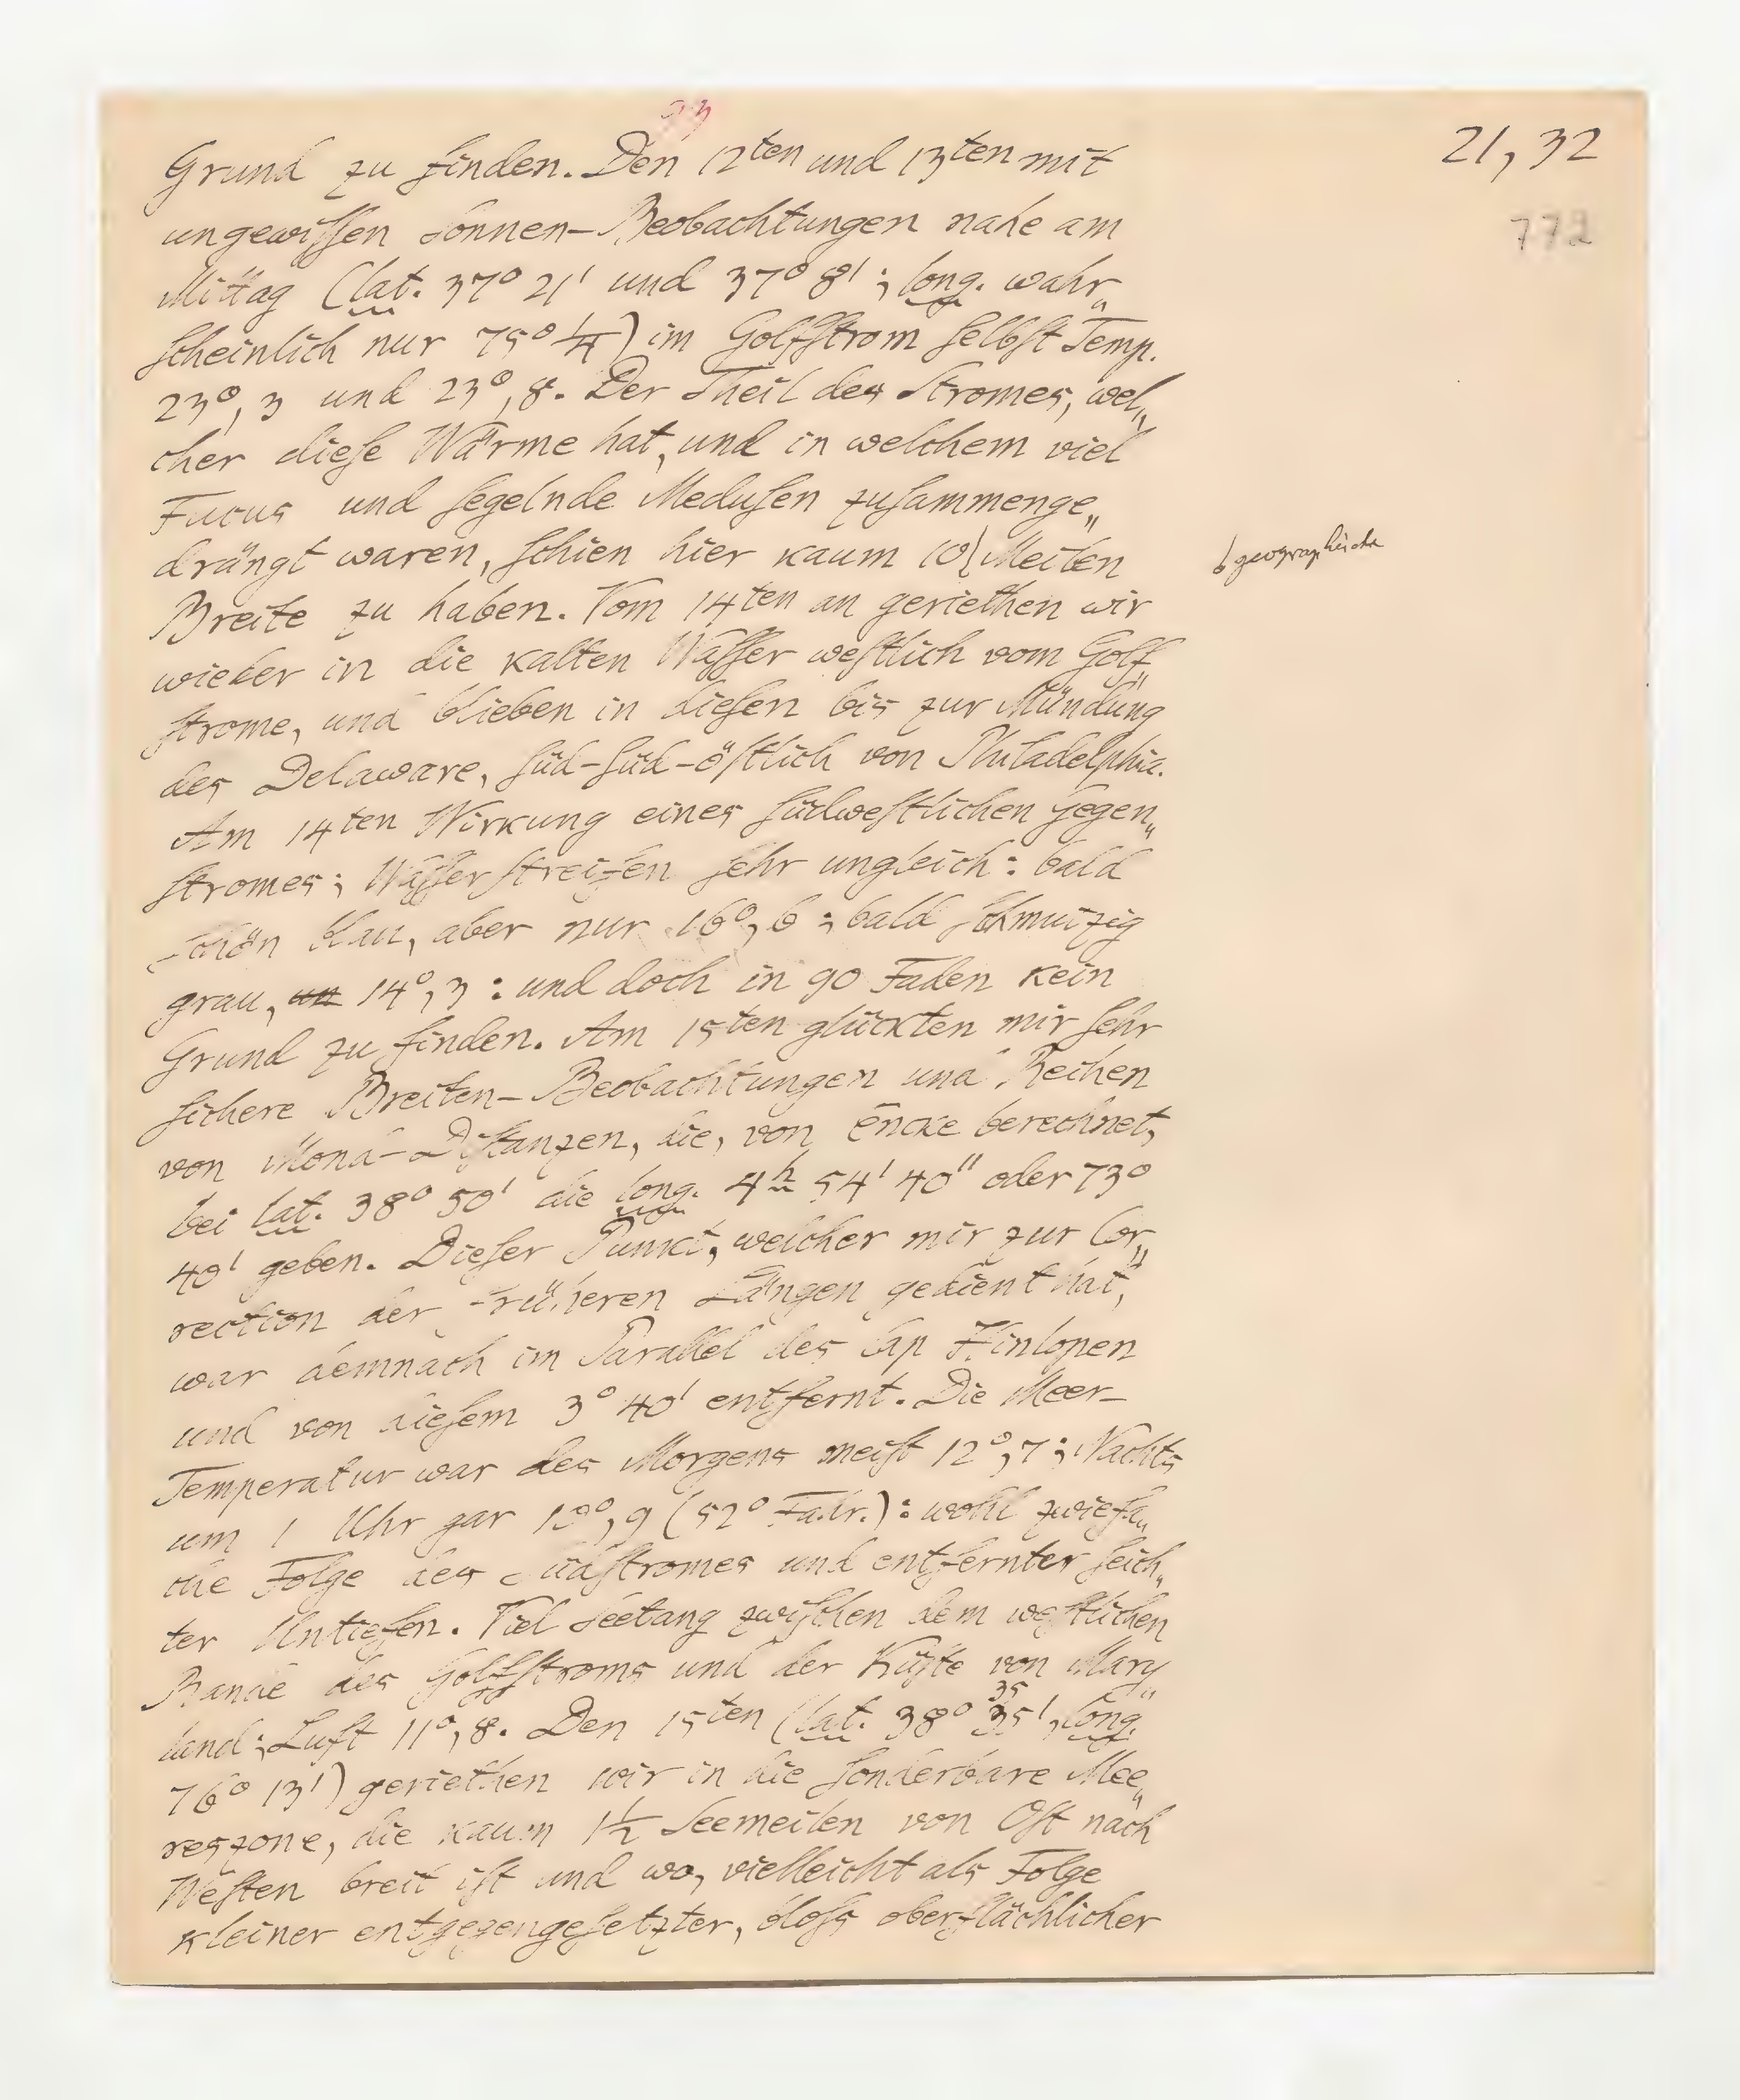 23
21, 32
772
Grund zu finden. Den 12ten und 13ten mit
ungewiſſen Sonnen-Beobachtungen nahe am
Mittag (lat. 37° 21' und 37° 8'; long. wahr„
ſcheinlich nur 75° ¼) im Golfſtrom ſelbſt Temp.
23°, 3 und 23°, 8. Der Theil des Stromes, wel„
cher dieſe Wärme hat, und in welchem viel
Fucus und ſegelnde Meduſen zuſammenge„
drängt waren, ſchien hier kaum 10 Meilen
geographiſche
Breite zu haben. Vom 14ten an geriethen wir
wieder in die kalten Waſſer weſtlich vom Golf„
ſtrome, und blieben in dieſen bis zur Mündung
des Delaware, ſüd-ſüd-öſtlich von Philadelphia.
Am 14ten Wirkung eines ſüdweſtlichen Gegen„
ſtromes; Waſſerſtreifen ſehr ungleich: bald
ſchön blau, aber nur 16°, 6; bald ſchmutzig
grau, un 14°, 3: und doch in 90 Faden kein
Grund zu finden. Am 15ten glückten mir ſehr
ſichere Breiten-Beobachtungen und Reihen
von Mond-Diſtanzen, die, von Encke berechnet,
bei lat. 38° 50' die long. 4h 54' 40" oder 73°
40' geben. Dieſer Punkt, welcher mir zur Cor„
rection der früheren Längen gedient hat,
war demnach im Parallel des Cap Hinlopen
und von dieſem 3° 40' entfernt. Die Meer-
Temperatur war des Morgens meiſt 12°, 7; Nachts
um 1 Uhr gar 10°, 9 (52° Fahr.): wohl zwiefa„
che Folge des Südſtromes und entfernter ſeich„
ter Untiefen. Viel Seetang zwiſchen dem weſtlichen
Rande des Golfſtroms und der Küſte von Mary„
land; Luft 11°, 8. Den 15ten (lat. 38° 35', long.
35
76° 13') geriethen wir in die ſonderbare Mee„
reszone, die kaum 1½ Seemeilen von Oſt nach
Weſten breit iſt und wo, vielleicht als Folge
kleiner entgegengeſetzter, bloſs oberflächlicher